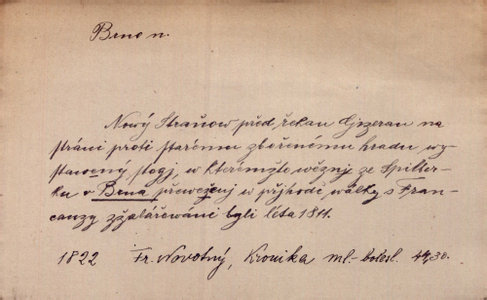 Brno n.
Nowý Stražow před řekau Gizerau na
stráni proti starému zbořenému hradu wy-
stawený stogj, w kterémžto wězni ze Špilber-
ku v Brna přewezenj w přjhodě wálky s Fran-
cauzy zžalářowáni byli léta 1811.
1822 Fr. Novotný, Kronika ml.-bolesl.